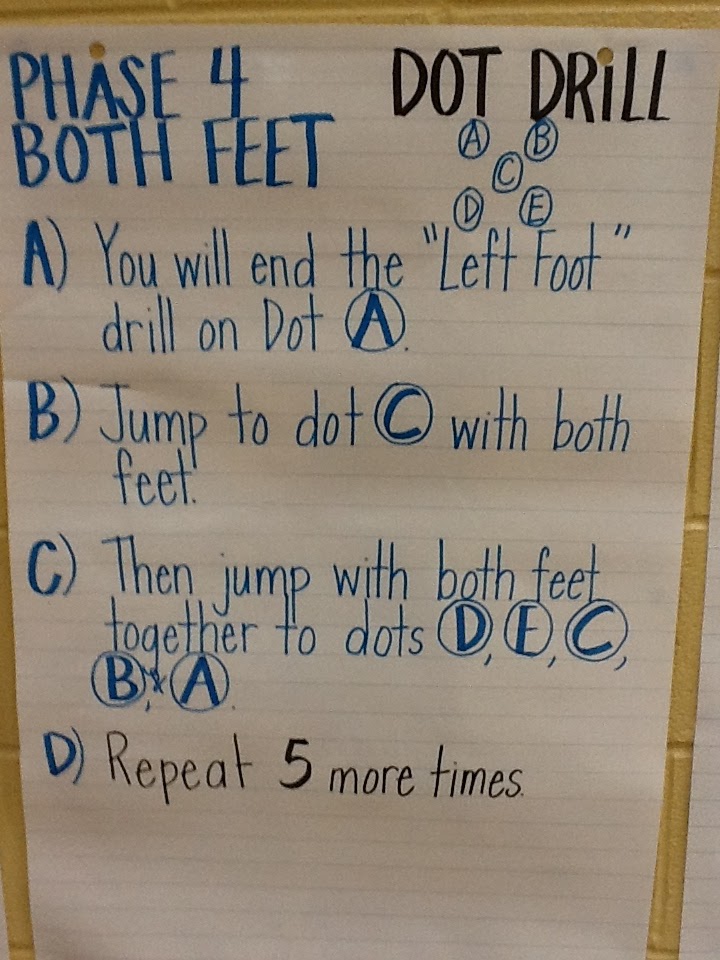 PHASE 4
BOTH FEET
DOT DRiLL
A B
C
D E
A) You will end the "Left Foot"
drill on Dot A.
B) Jump to dot C with both
feet.
C) Then jump with both feet
together to dots D, E, C,
B, & A.
D) Repeat 5 more times.